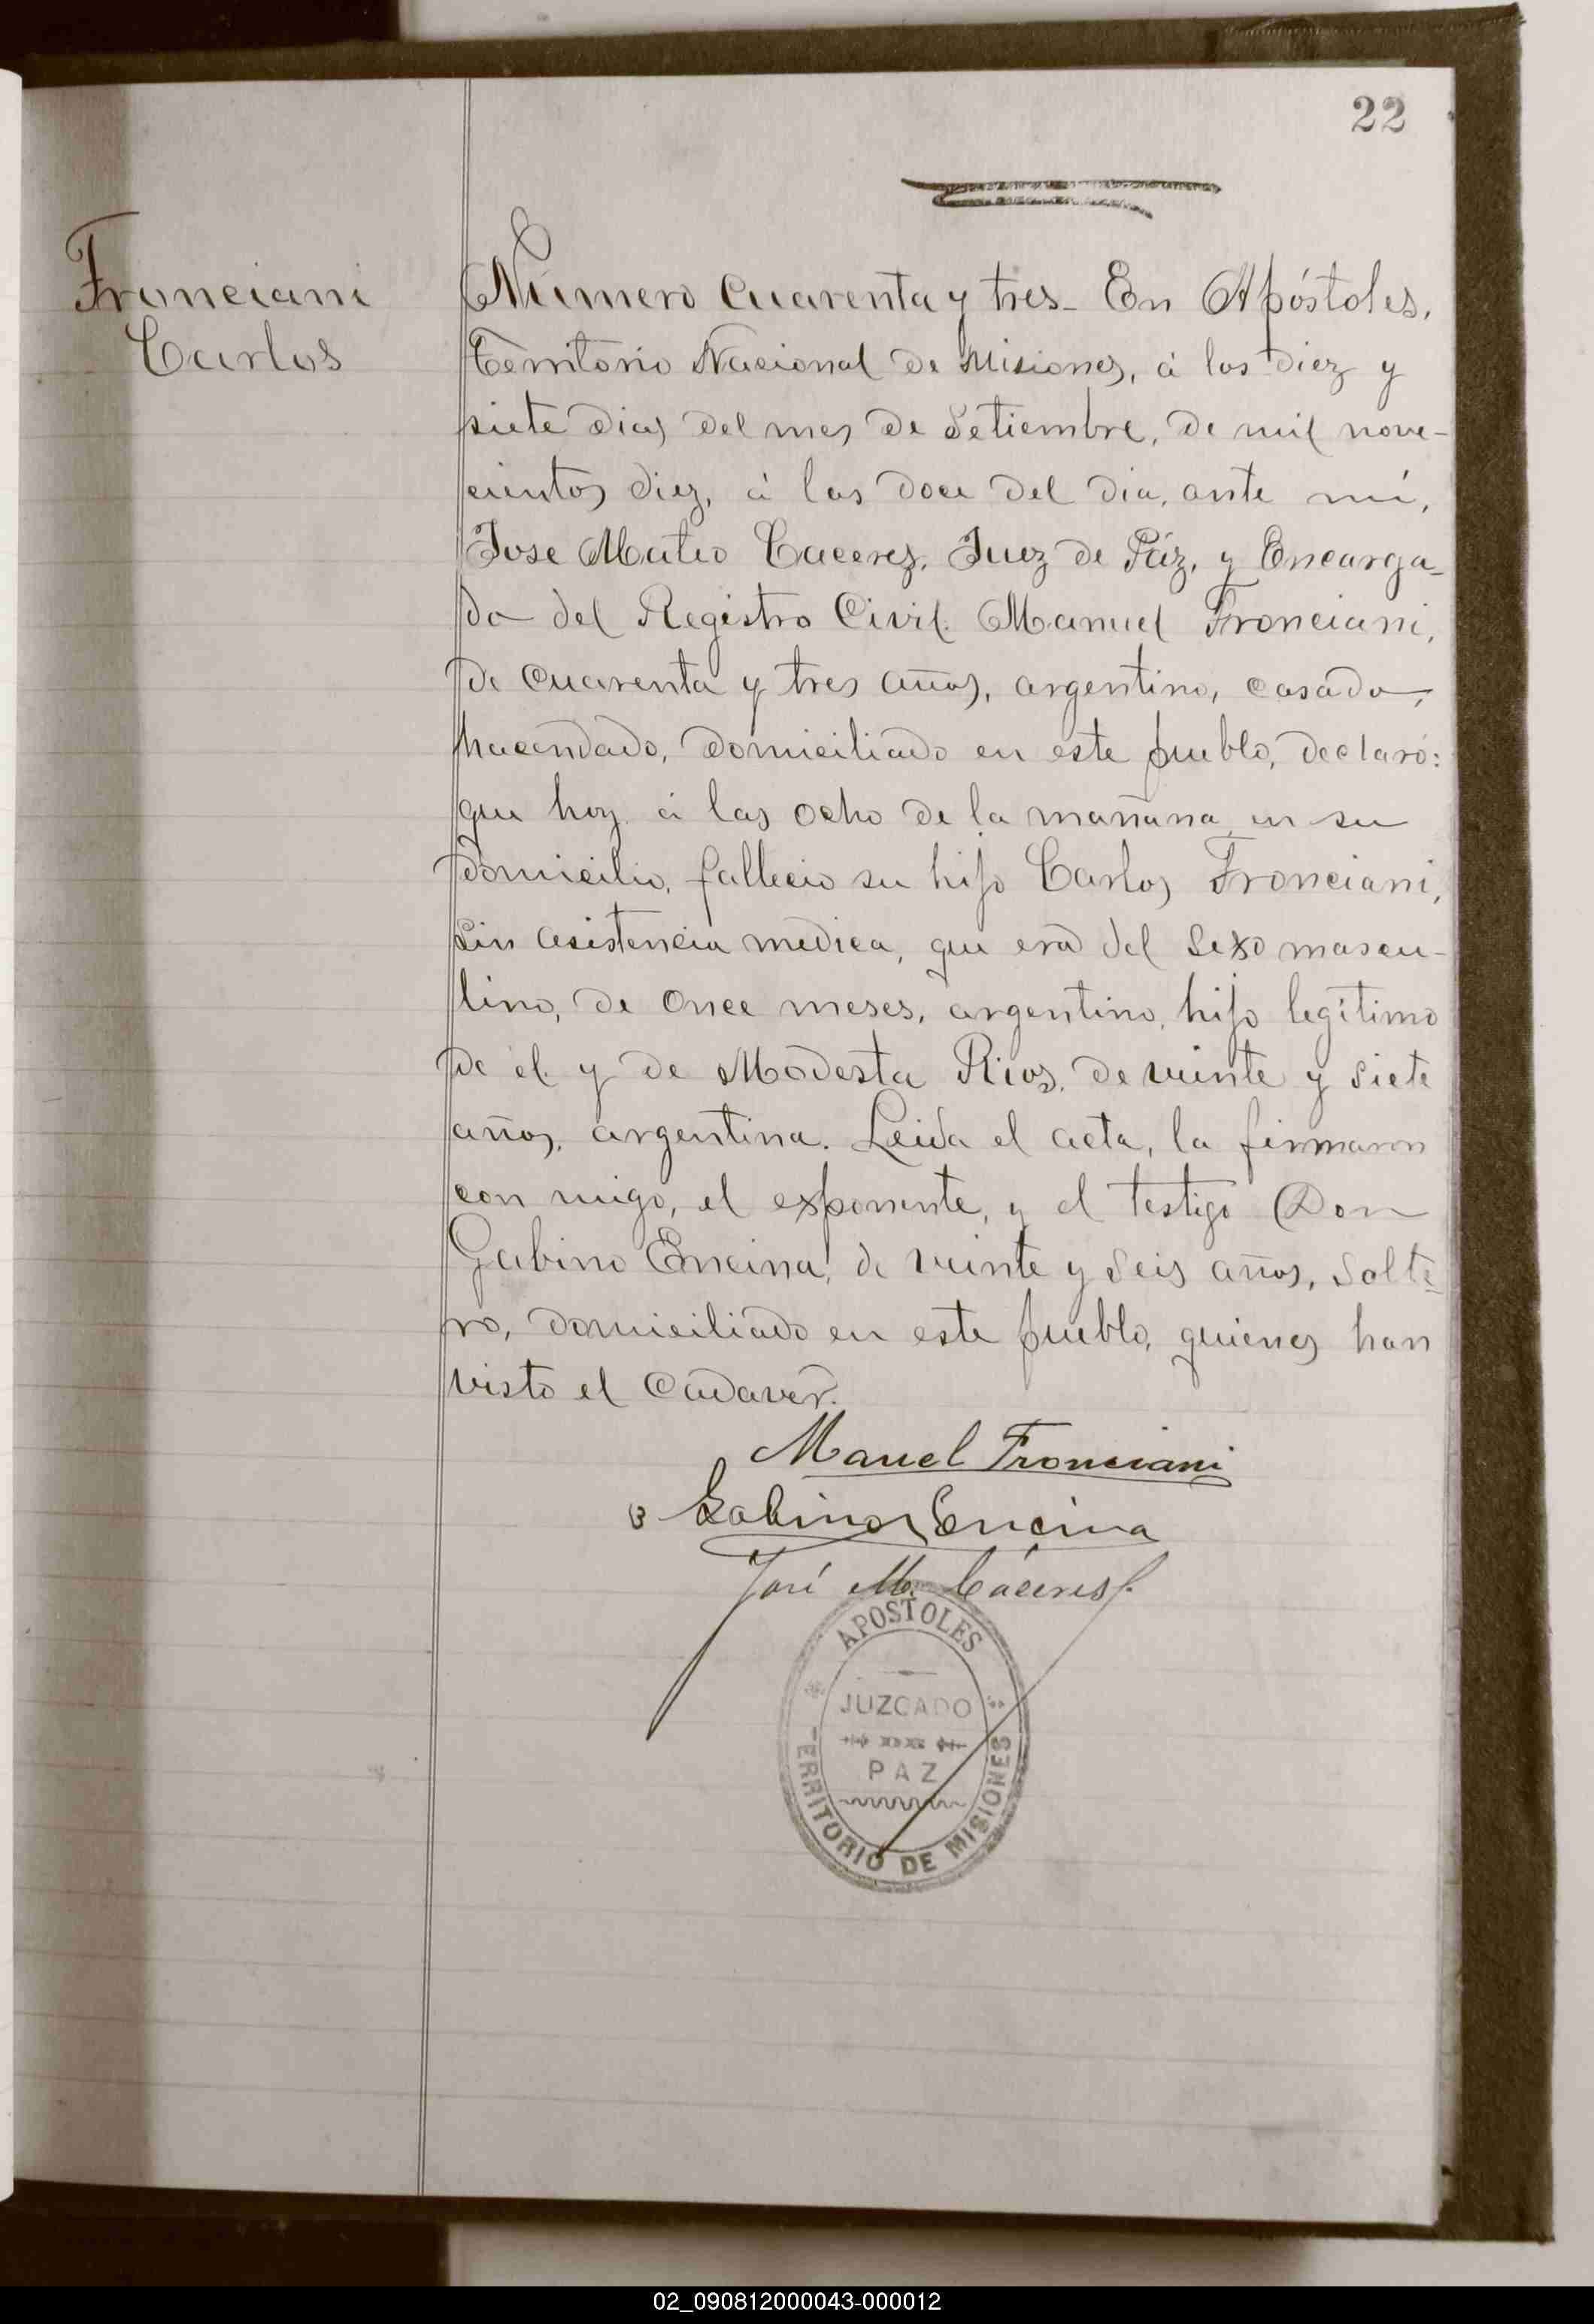 22
Fronciani
Carlos
Número cuarenta y tres_ En Apóstoles,
Territorio Nacional de Misiones, á los diez y
siete dias del mes de Setiembre, de mil nove-
cientos diez, á las doce del dia, ante mí,
Jose Mateo Caceres, Juez de Páz, y Encarga-
do del Registro Civil. Manuel Fronciani,
de cuarenta y tres años, argentino, casado,
hacendado, domiciliado en este pueblo, declaró:
que hoy á las ocho de la mañana, en su
domicilio, fallecio su hijo Carlos Fronciani,
sin asistencia medica, que era del sexo mascu-
lino, de once meses, argentino, hijo legítimo
de él y de Modesta Rios, de veinte y siete
años, argentina. Leida el acta, la firmaron
con migo, el exponente, y el testigo Don
Gabino Encina, de veinte y seis años, solte-
ro, domiciliado en este pueblo, quienes han
visto el cadaver.
Manuel Fronciani
Gabino Encina
José M. Cáceres
APOSTOLES
JUZGADO
PAZ
TERRITORIO DE MISIONES
02_090812000043-000012